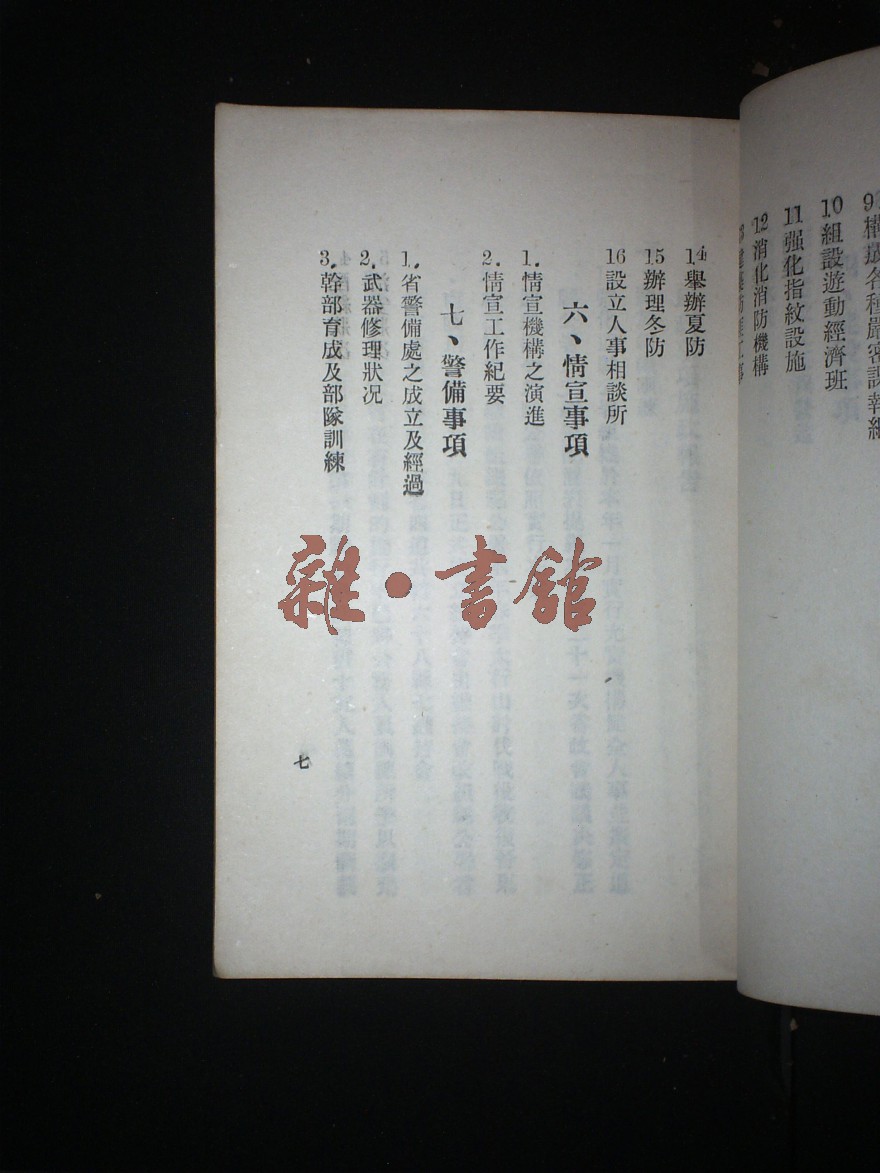 10組設遊動經濟班
11强化指紋設施
12消化消防機構
14舉辦夏防
15辦理冬防
16設立人事相談所
六、情宣事項
1.情宣機構之演進
2.情宣工作紀要
七、警備事項
1.省警備處之成立及經過
2.武器修理狀况
3.幹部育成及部隊訓練
七
雜·書館